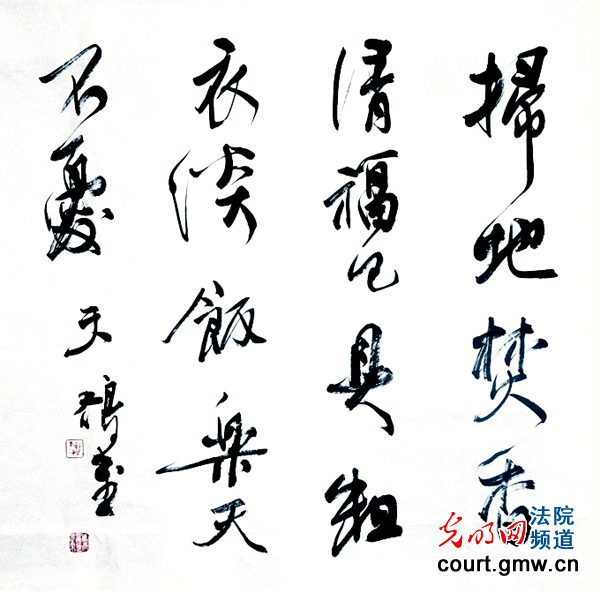 掃地焚香
清福已具粗
衣淡飯樂天
不憂 天鵬書
光明网
法院
频道
court.gmw.cn